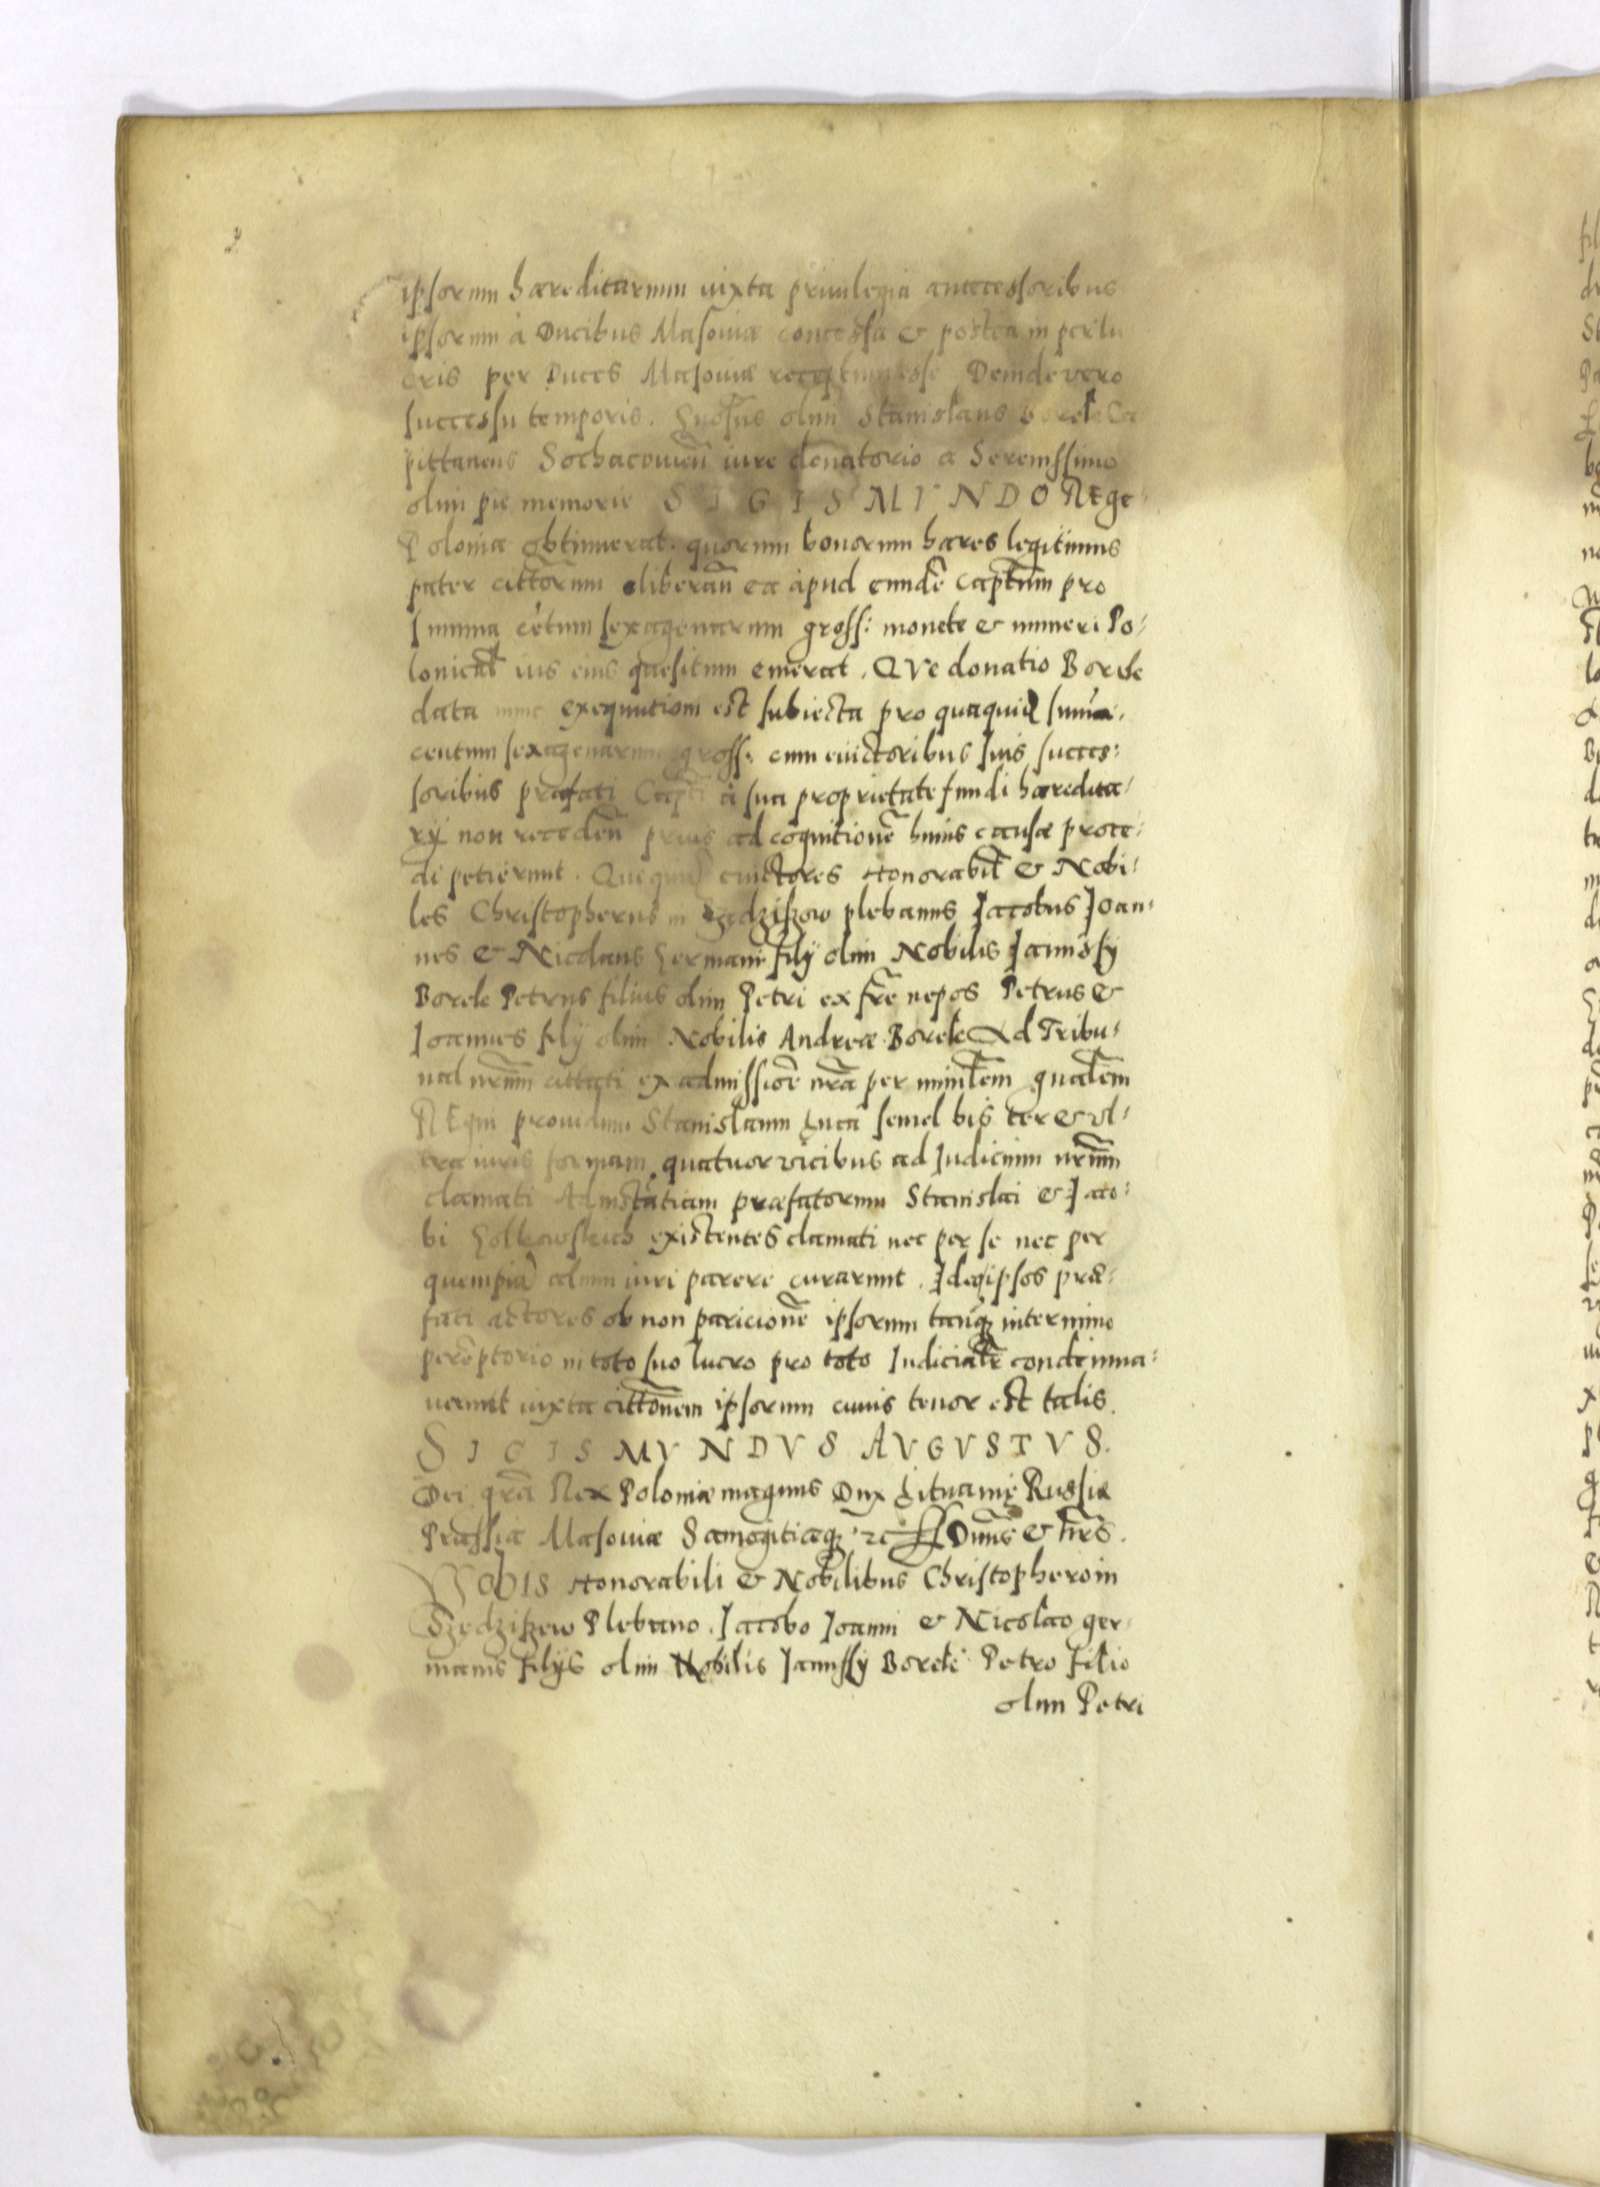 ipsorum hæreditarium iuxta priuilegia antecessoribus
ipsorum à Ducibus Masouiæ concessa & postea in
per Duces Masouiæ Deinde vero
successu temporis. olim Stanislaus Borek Ca
pittaneus Sochacouień iure donatorio a Serenissimo
olim pie memorie S I G I S M V N D O REge
Poloniæ obtinuerat. quorum bonorum hæres legitimus
pater cittorum ea apud eundē Captm̄ pro
summa cētum sexagenarum gross: monete & numeri Po,
lonicał ius eius quæsitum emerat. QVe donatio Borek
data nunc exequutioni est subiecta pro quaquid sum̄a,
centum sexagenarum gross: cum euictoribus suis succes:
soribus præfati Capti à sua proprietate fundi hæredita,
rÿ non receden̄ prius ad cognitionē huius causæ proce,
di petierunt. Quequid euictores Honorabił & Nobi,
les Christopherus in plebanus Jacobus Joan,
nes & Nicolaus Germani filÿ olim Nobilis Janussÿ
Borek Petrus filius olim Petri ex frē nepos Petrus &
Joannes filÿ olim Nobilis Andreæ Borek Ad Tribu,
nal nr̄m cittati ex admissiōe nrā per minłem gnałem
REgni prouidum Stanislaum Luca semel bis ter & vl,
tra iuris formam quatuor vicibus ad Judicium nr̄m
clamati Ad præfatorum Stanislai & Jaco,
bi existentes clamati nec per se nec per
quempiā alium iuri parere curarunt. Ideoq ipsos præ,
fati actores ob non paricionē ipsorum tanq̄ȝ in termino
perēptorio in toto suo lucro pro toto Judicialr̄ condemna:
uerunt iuxta cittōnem ipsorum cuius tenor est talis.
S I G I S M V N D V S A V G V S T V S.
Dei grā Rex Poloniæ magnus Dux Lituanię Russiæ
Prussiæ Masouiæ Samogitiæqȝ &c Dnus & hr̄es.
VObIS Honorabili & Nobilibus Christophero in
Plebano. Jacobo Joanni & Nicolao ger,
manis filÿs olim Nobilis Janussÿ Borek Petro filio
olim Petri